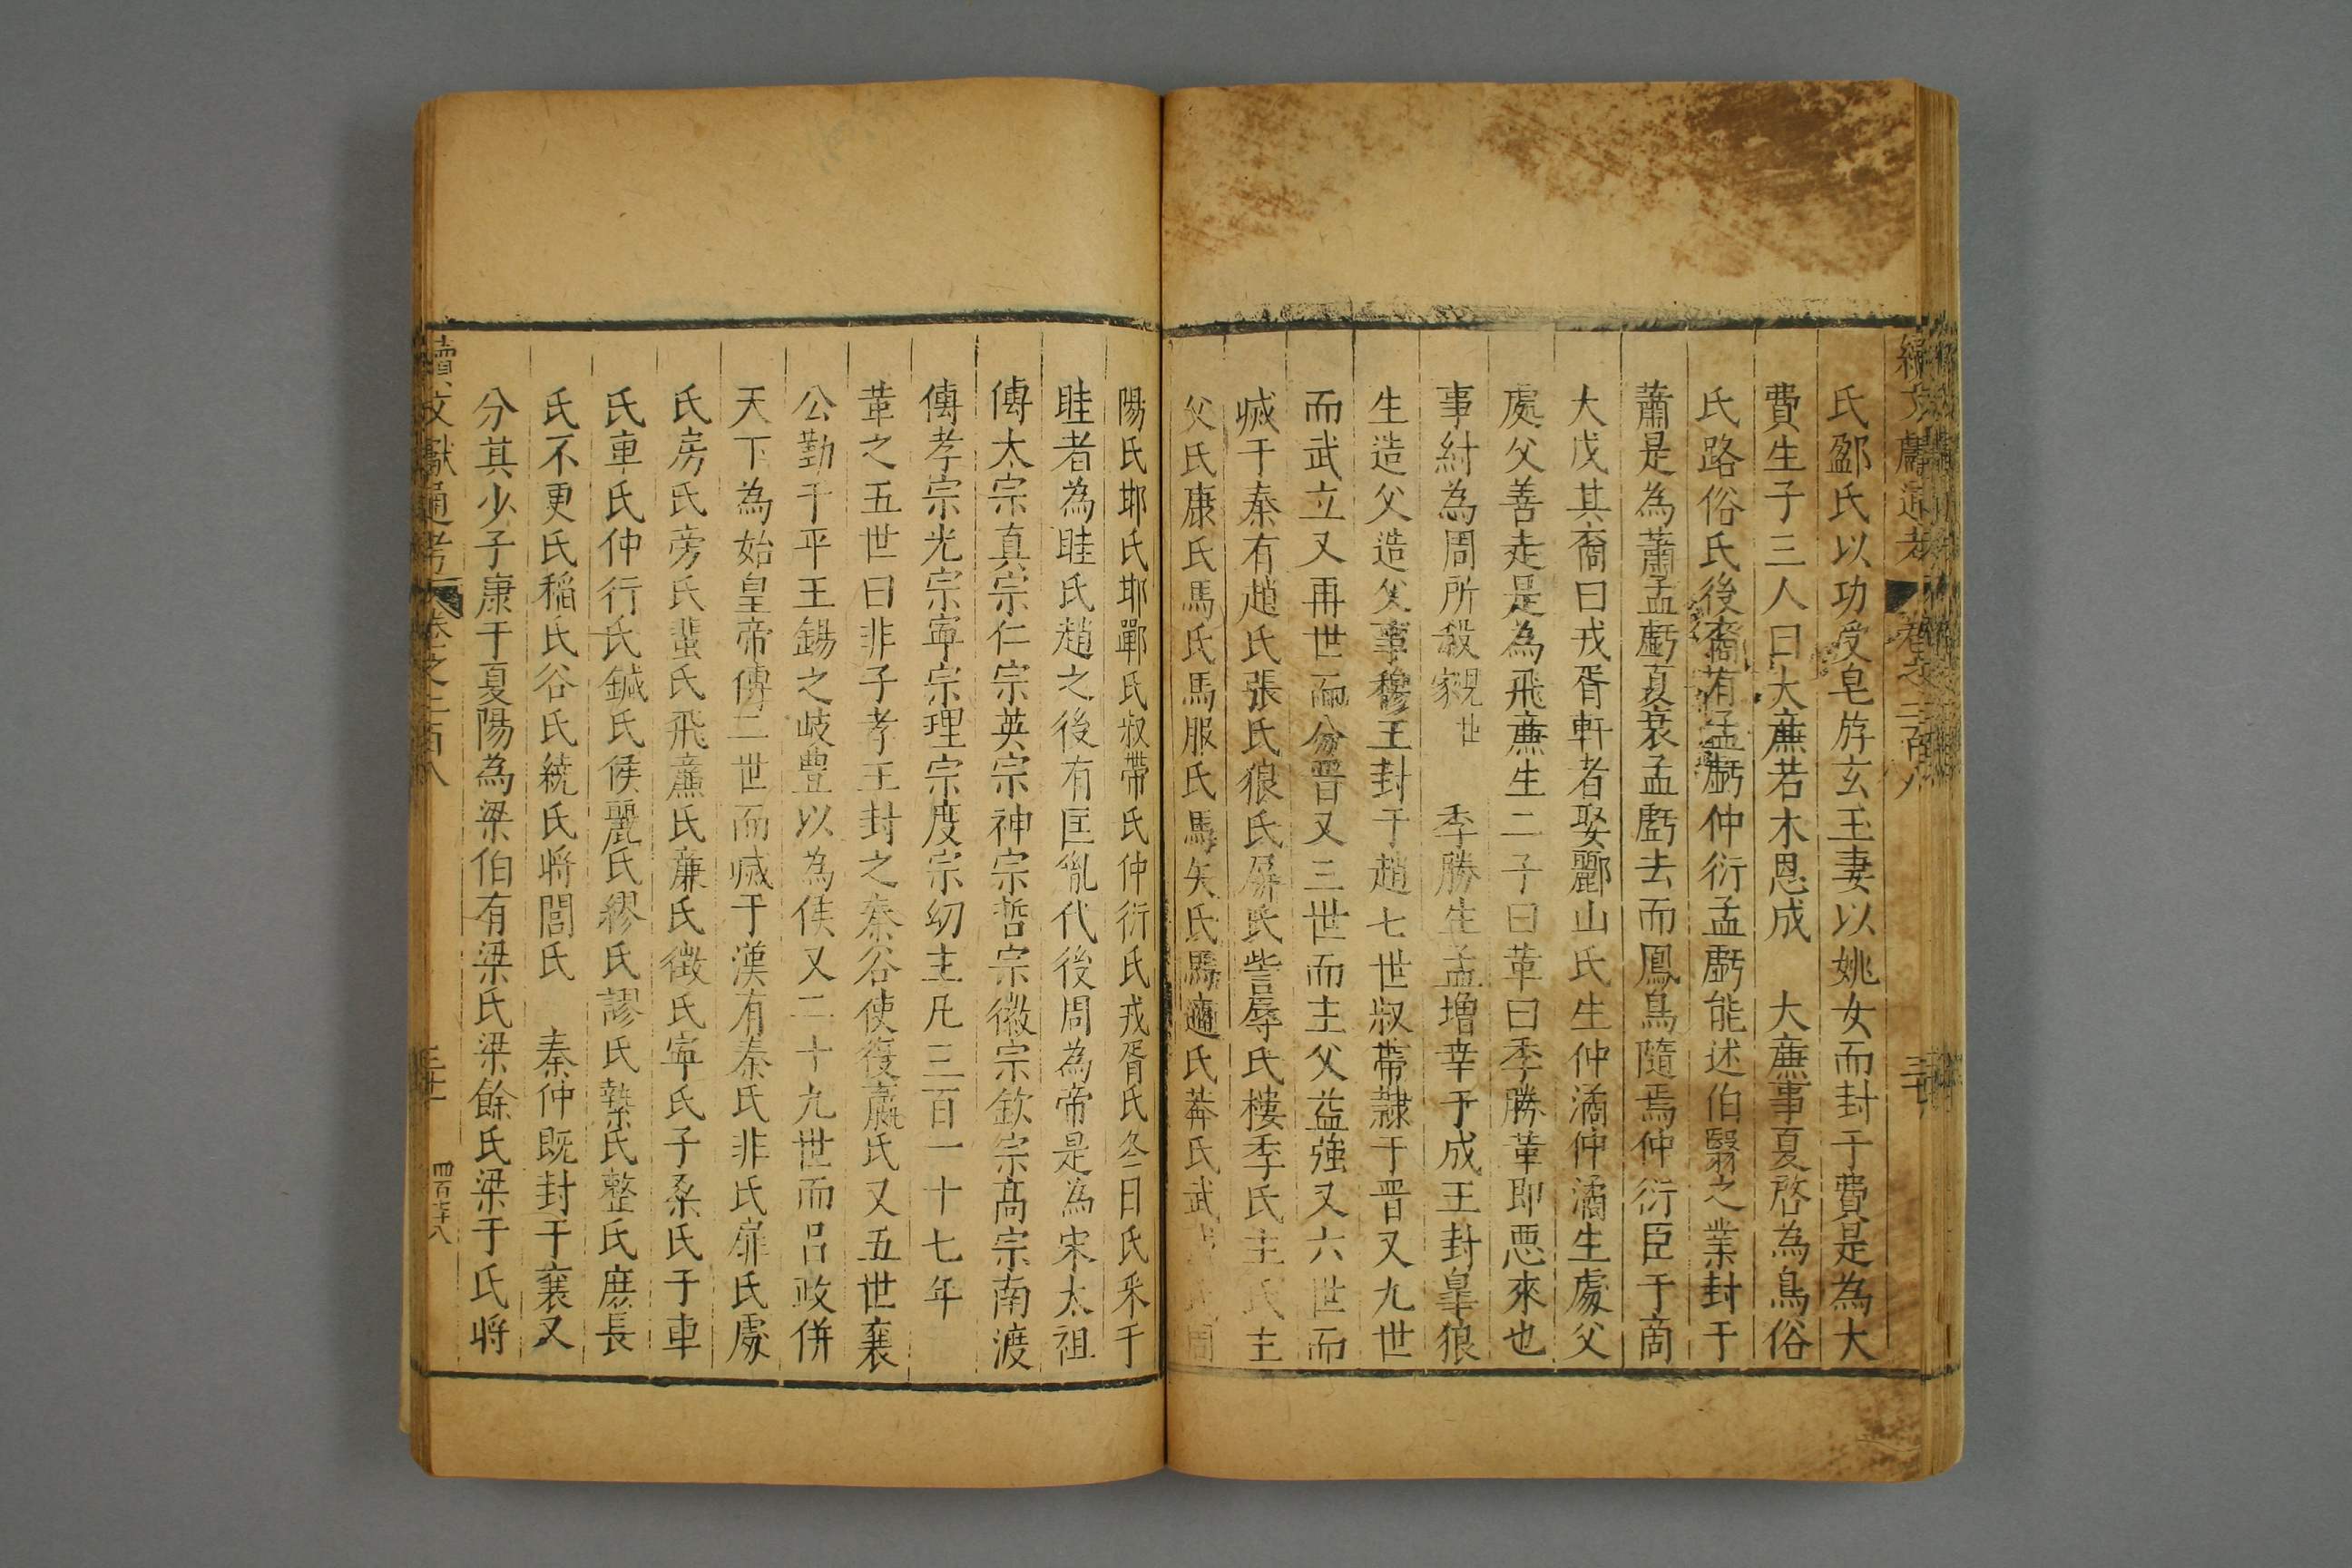 續文獻通考 卷之二百八
氏鄾氏以功受皂斿玄玉妻以姚女而封于費是為大
費生子三人曰大廉若木恩成 大廉事夏啓為鳥俗
氏路俗氏後裔有孟虧仲衍孟虧能述伯翳之業封于
蕭是為蕭孟虧夏衰孟虧去而鳳鳥隨焉仲衍臣于商
大戊其裔曰戎胥軒者娶酈山氏生仲潏仲潏生處父
處父善走是為飛廉生二子曰革曰季勝革即悪來也
事紂為周所殺 季勝生孟增幸于成王封皐狼
生造父造父事穆王封于趙七世叔帶隷于晋又九世
而武立又再世而分晋又三世而主父益強又六世而
㓕于秦有趙氏張氏狼氏屏氏訾辱氏樓季氏主氏主
父氏康氏馬氏馬服氏馬矢氏馬適氏莾氏武
陽氏邯氏邯鄲氏叔帶氏仲衍氏戎胥氏冬日氏釆于
眭者為眭氏趙之後有匡胤代後周為帝是為宋太祖
傳太宗真宗仁宗英宗神宗哲宗徽宗欽宗高宗南渡
傳孝宗光宗寧宗理宗度宗幼主凡三百一十七年
革之五世曰非子孝王封之秦谷使復嬴氏又五世襄
公勤于平王錫之岐豊以為侯又二十九世而呂政併
天下為始皇帝傳二世而㓕于漢有秦氏非氏扉氏處
氏房氏旁氏蜚氏飛廉氏廉氏徵氏寧氏子桑氏于車
氏車氏仲行氏鍼氏侯麗氏繆氏謬氏縶氏整氏庶長
氏不更氏稲氏谷氏繞氏將閭氏 秦仲既封于襄又
分其少子康于夏陽為梁伯有梁氏梁餘氏梁于氏將
續文獻通考 卷之二百八 四百七十八